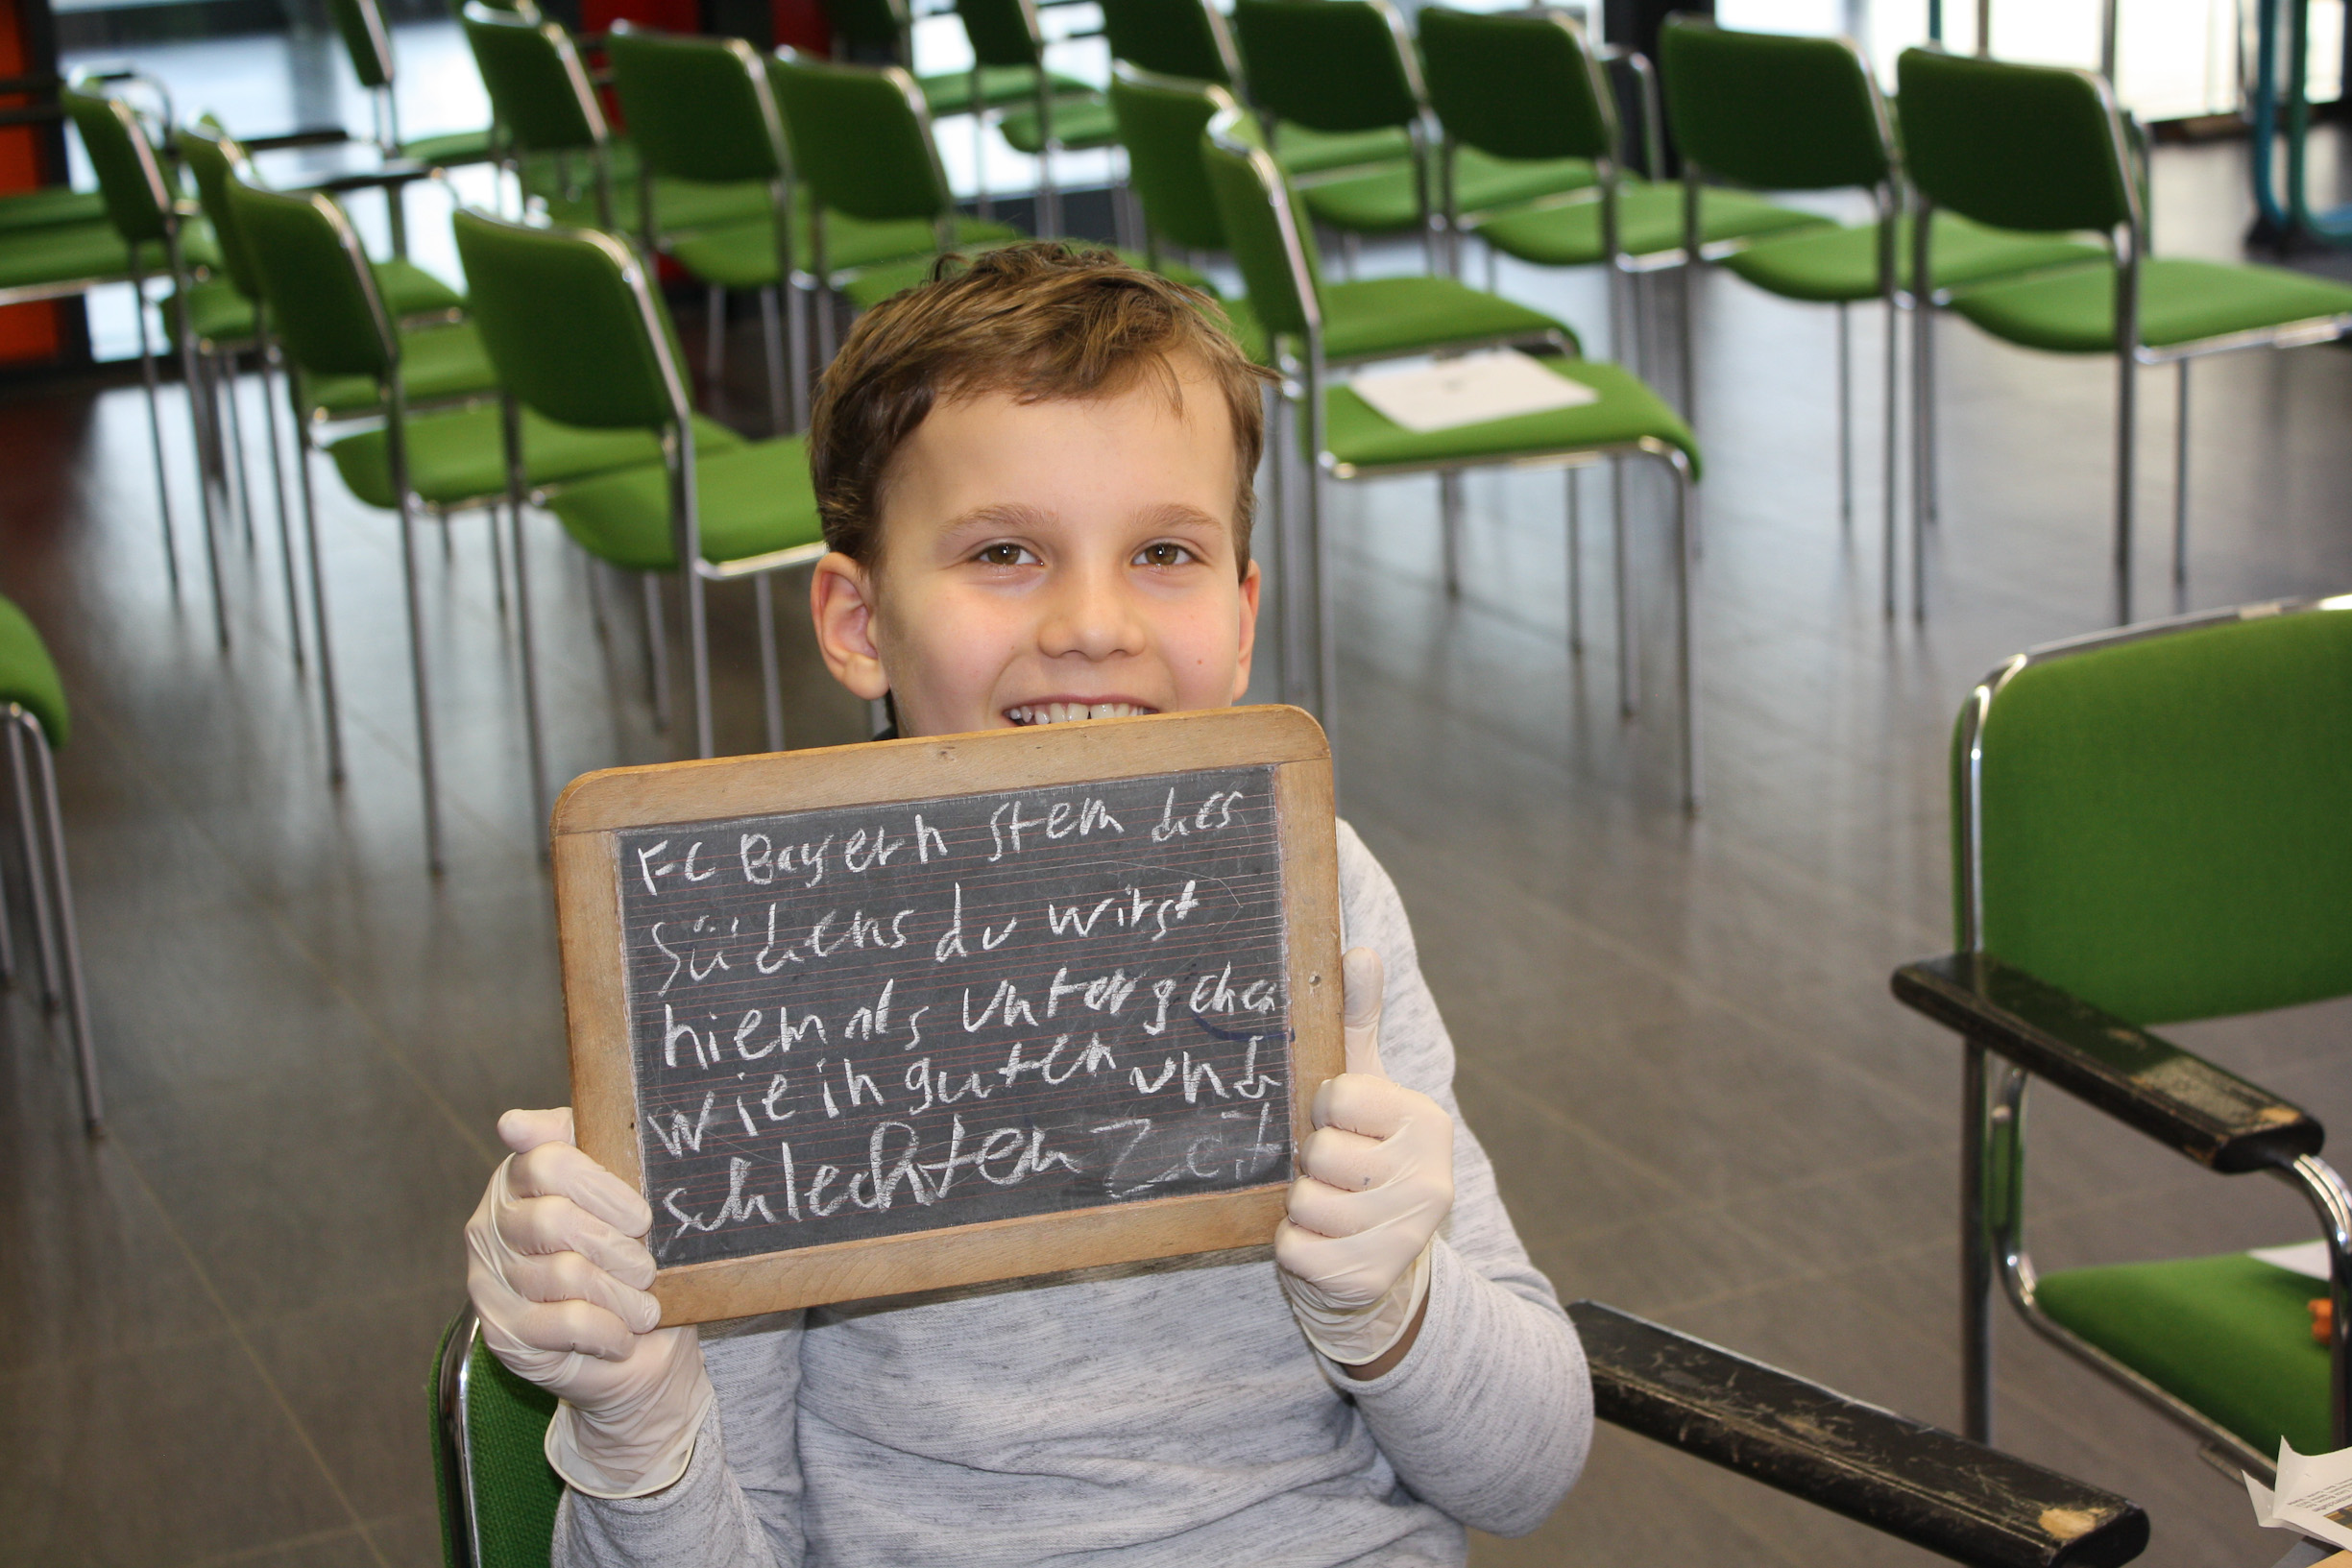 FC Bayern stern des
Südens du wirst
niemals untergehen
wie in guten und
schlechten Zeit